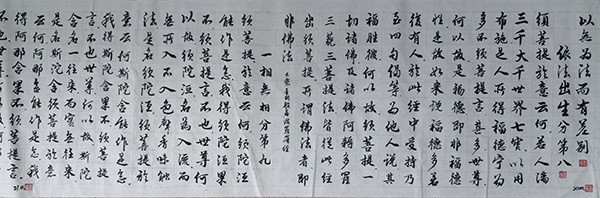 以無为法而有差别
依法出生分第八
須菩提於意云何若人滿
三千大千世界七寶以用
布施是人所得福德寧为
多不須菩提言甚多世尊
何以故是福德即非福德
性是故如來說福德多若
復有人於此經中受持乃
至四句偈等为他人說其
福勝彼何以故須菩提一
切諸佛及諸佛阿耨多羅
三藐三菩提法皆從此經
出須菩提所謂佛法者即
非佛法
金剛般若波羅蜜經
一相無相分第九
須菩提於意云何須陀洹
能作是念我得須陀洹果
不須菩提言不也世尊何
以故須陀洹名为入流而
無所入不入色聲香味觸
法是名須陀洹須菩提於
意云何斯陀含能作是念
我得斯陀含果不須菩提
言不也世尊何以故斯陀
含名一往來而實無往來
是名斯陀含須菩提於意
云何阿那含能作是念我
得阿那含果不須菩提言
不也世尊何以故